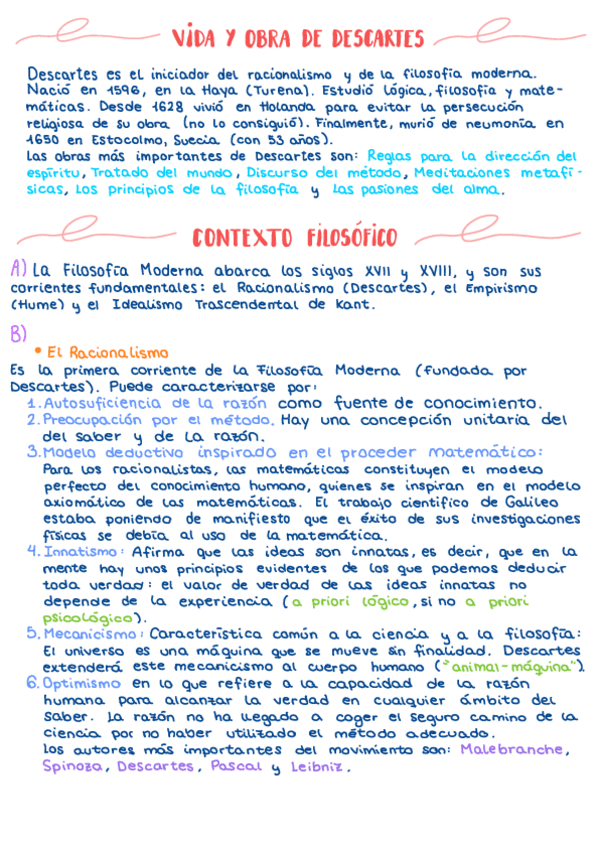 VIDA Y OBRA DE DESCARTES
Descartes es el iniciador del racionalismo y de la filosofía moderna.
Nació en 1596, en La Haya (Turena). Estudió lógica, filosofía y mate-
máticas. Desde 1628 vivió en Holanda para evitar la persecución
religiosa de su obra (no lo consiguió). Finalmente, murió de neumonía en
1650 en Estocolmo, Suecia (con 53 años).
Las obras más importantes de Descartes son: Reglas para la dirección del
espíritu, Tratado del mundo, Discurso del método, Meditaciones metafí-
sicas, Los principios de la filosofía y Las pasiones del alma.
CONTEXTO FILOSÓFICO
A) La Filosofía Moderna abarca los siglos XVII y XVIII, y son sus
corrientes fundamentales: el Racionalismo (Descartes), el Empirismo
(Hume) y el Idealismo Trascendental de Kant.
B)
• El Racionalismo
Es la primera corriente de la Filosofía Moderna (fundada por
Descartes). Puede caracterizarse por:
1. Autosuficiencia de la razón como fuente de conocimiento.
2. Preocupación por el método. Hay una concepción unitaria del
del saber y de la razón.
3. Modelo deductivo inspirado en el proceder matemático:
Para los racionalistas, las matemáticas constituyen el modelo
perfecto del conocimiento humano, quienes se inspiran en el modelo
axiomático de las matemáticas. El trabajo científico de Galileo
estaba poniendo de manifiesto que el éxito de sus investigaciones
físicas se debía al uso de la matemática.
4. Innatismo: Afirma que las ideas son innatas, es decir, que en la
mente hay unos principios evidentes de los que podemos deducir
toda verdad: el valor de verdad de las ideas innatas no
depende de la experiencia (a priori lógico, si no a priori
psicológico).
5. Mecanicismo: Característica común a la ciencia y a la filosofía:
El universo es una máquina que se mueve sin finalidad. Descartes
extenderá este mecanicismo al cuerpo humano ("animal-máquina")
6. Optimismo en lo que refiere a la capacidad de la razón
humana para alcanzar la verdad en cualquier ámbito del
saber. La razón no ha llegado a coger el seguro camino de la
ciencia por no haber utilizado el método adecuado.
Los autores más importantes del movimiento son: Malebranche,
Spinoza, Descartes, Pascal y Leibniz.